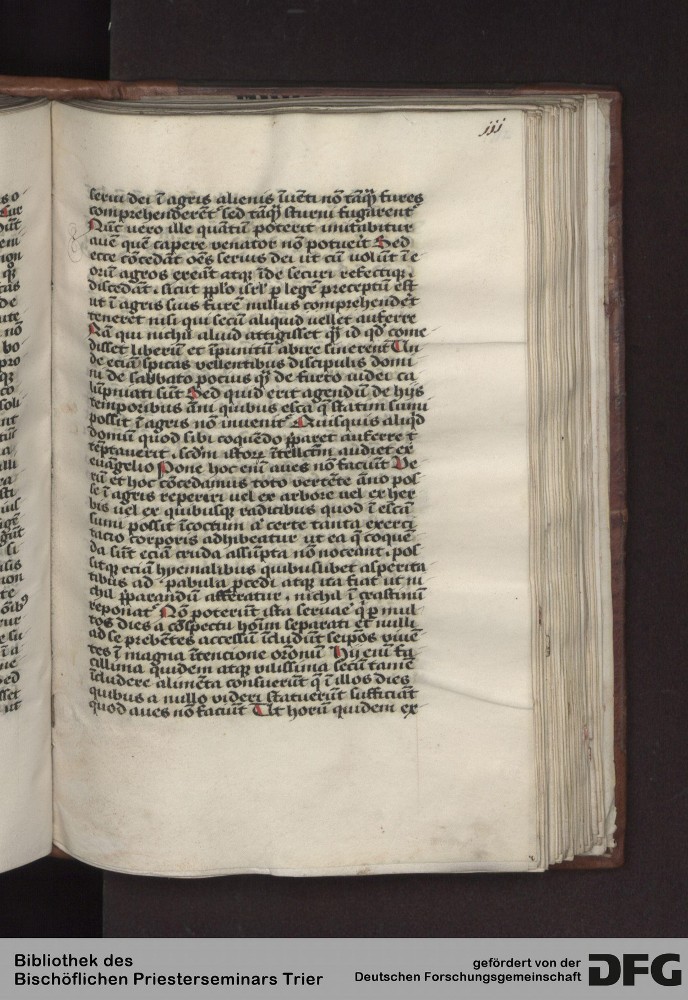 iij
serui dei ī agris alienis īuēti nō tāꝙ̄ fures
comprehenderēt sed tāꝙ̄ sturni fugarent᷑
Nāc vero ille quātū poterit imitabitur
auē quē capere venator nō potuerit Sed
ecce cōcedāt oēs seruis dei ut cū volūt ī e
orū agros exeāt atqꝫ īde securi refectiqꝫ
discedāt . sicut ppl̄o isrl̄ p̲ legē preceptū est
ut ī agris suis furē nullus comprehendet᷑
teneret nisi qui secū aliquid vellet auferre
Nā qui nichil aliud attigisset ꝙ̄ id qd̄ come
disset liberū et īpunitū abire sinerent Vn
de eciā spicas vellentibus discipulis domi
ni de sabbato potius ꝙ̄ de furto iudei ca
lūpniati sūt Sed quid erit agendū de hijs
temporibus āni quibus esca q̄ statim sumi
possit ī agris nō inuenit᷑ Quisquis aliqd̄
domū quod sibi coquēdo p̄paret auferre t
ēptauerit . scdm̄ istorꝝ ītellectū audiet ex
euāgelio Pone hoc enī aues nō faciūt Ve
rū et hoc cōcedamus toto vertēte āno pos
se ī agris reperiri uel ex arbore uel ex her
bis uel ex quibusqꝫ radicibus quod ī escā
sumi possit īcoctum aut certe tanta exerci
tacio corporis adhibeatur ut ea q̄ coquēn
da sūt eciā cruda assūpta nō noceant . pos
sitqꝫ eciā hyemalibus quibuslibet asperita
tibus ad pabula p̲cedi atqꝫ ita fiat ut ni
chil p̄parandū afferatur . nichil ī crastinū
reponat᷑ Nō poterūt ista seruare q̄ p̲ mul
tos dies a cōspectu hoīm separati et nulli
ad se prebētes accessū īcludūt seipos viuē
tes ī magna ītencione or̄onū Hij enī fa
cillima quidem atqꝫ vilissima secū tamē
īcludere alimēta consuerūt q̄ ī illos dies
quibus a nullo videri statuerūt sufficiāt
quod aues nō faciūt Et horū quidem ex
Bibliothek des
Bischöflichen Priesterseminars Trier
gefördert von der
Deutschen Forschungsgemeinschaft
DFG